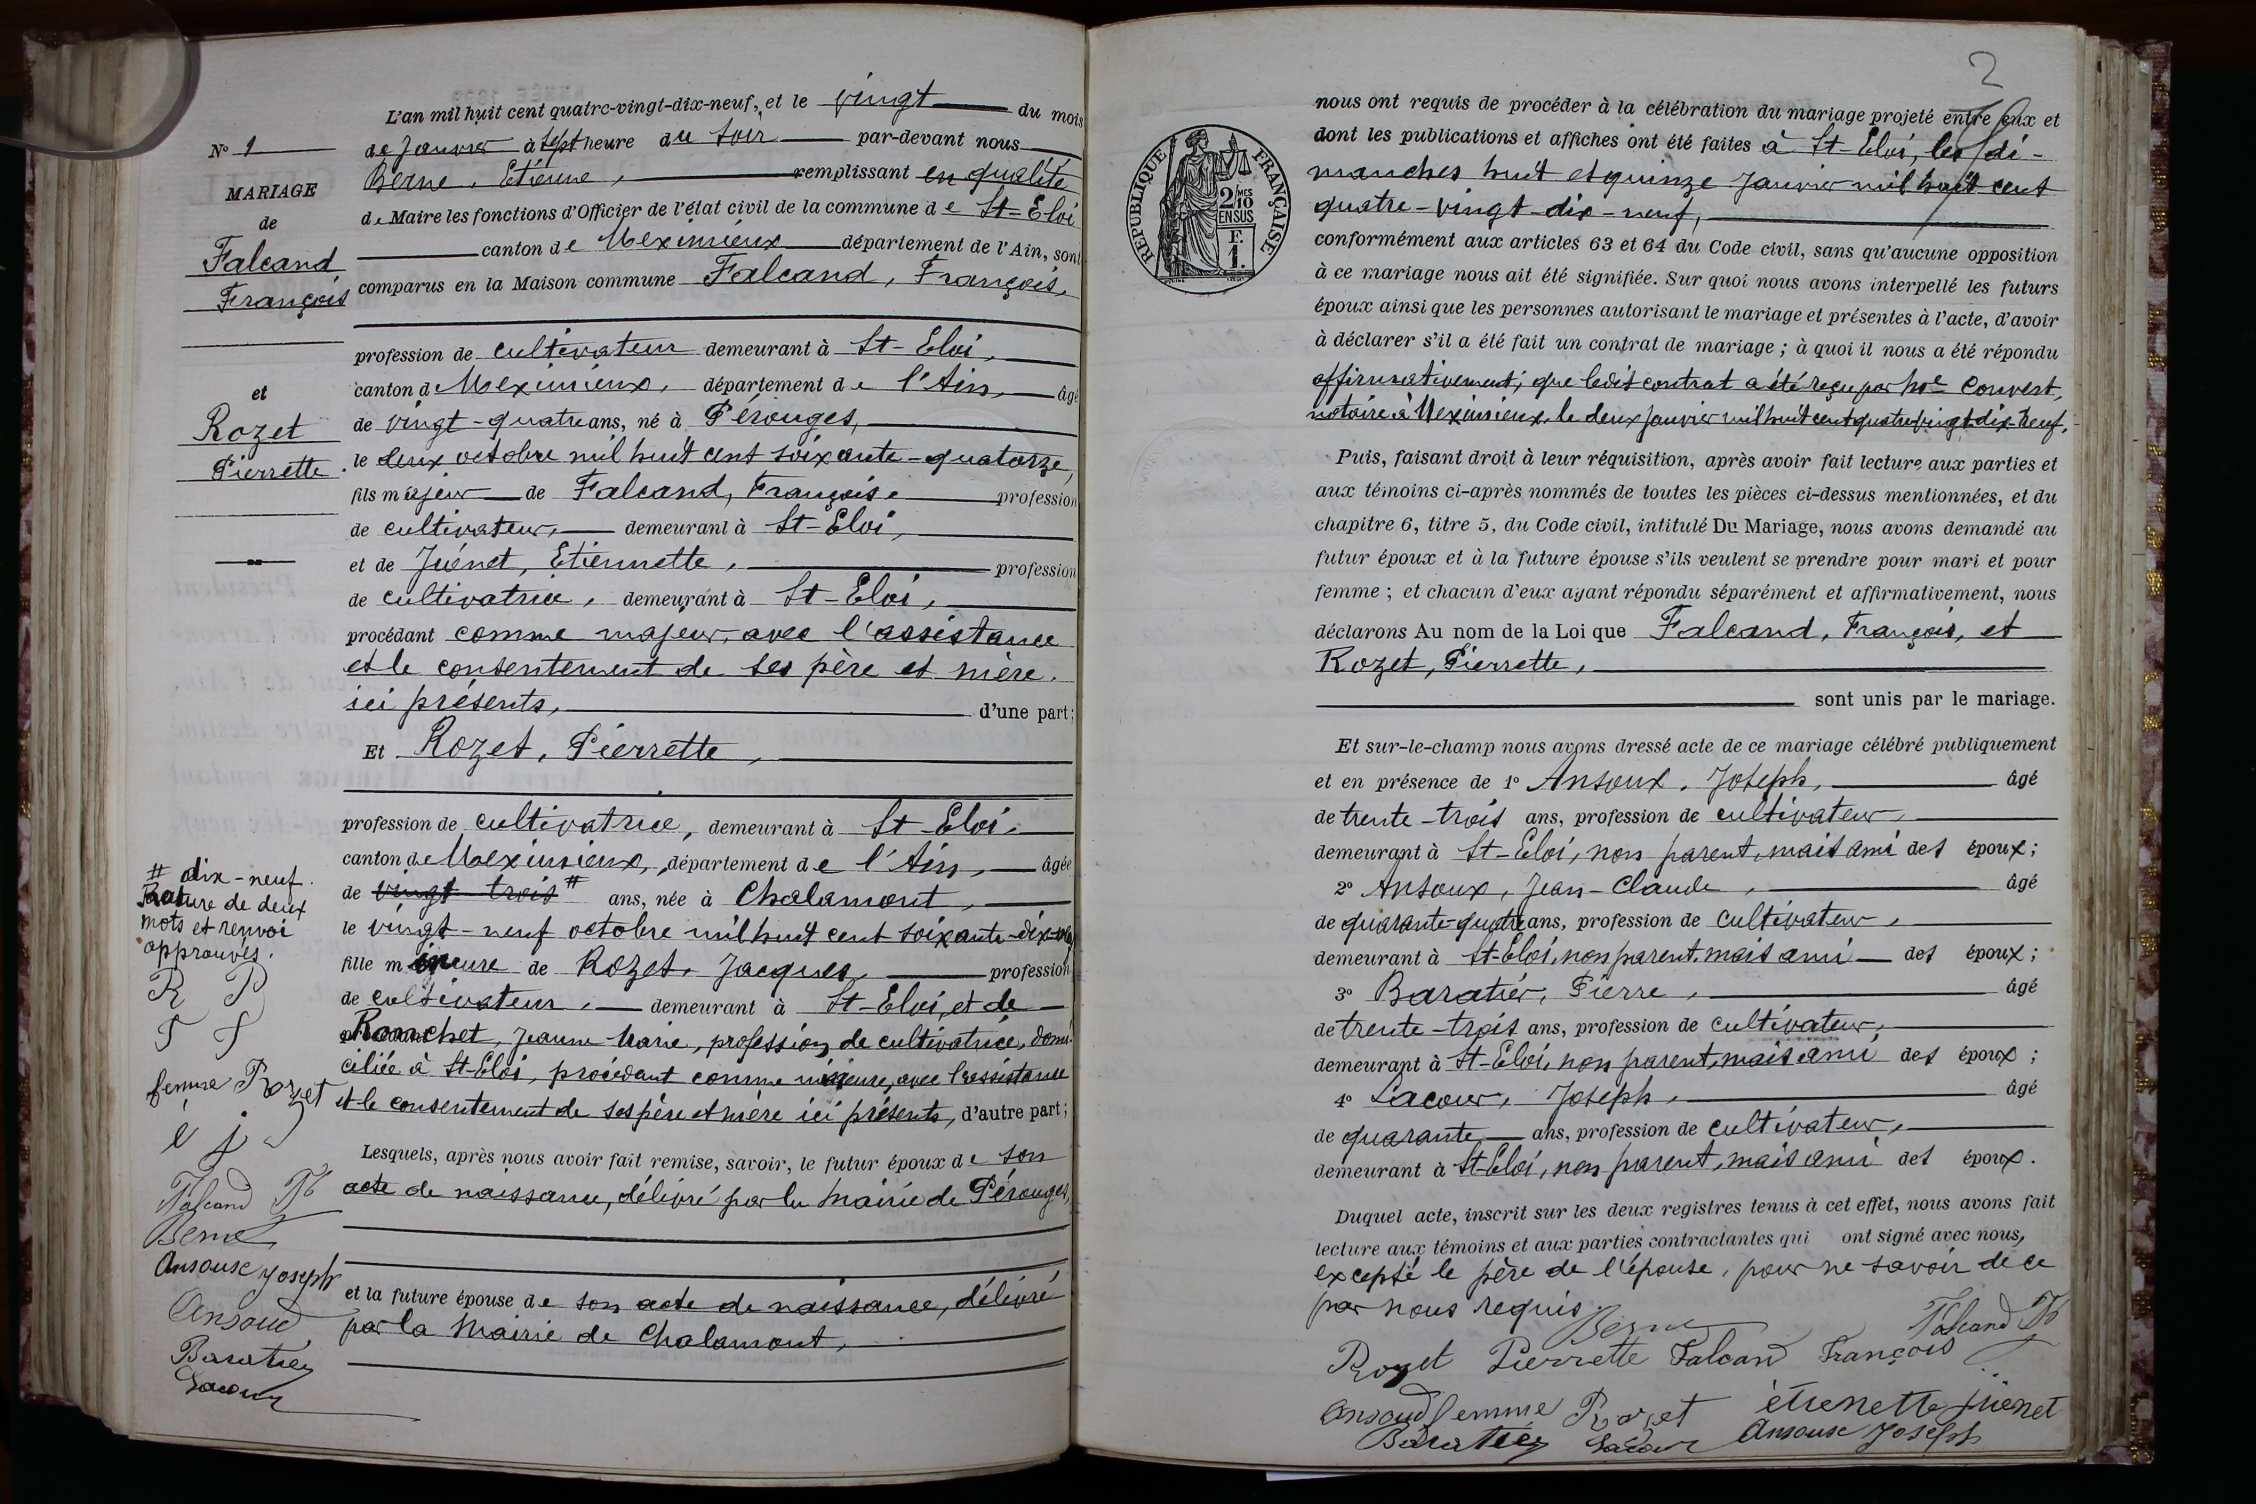 L'an mil huit cent quatre-vingt-dix-neuf, et le vingt du mois
de Janvier à sept heure du soir par-devant nous
Berne, Etienne, remplissant en qualité
de Maire les fonctions d'Officier de l'état civil de la commune de St-Eloi
canton de Meximieux département de l'Ain, sont
comparus en la Maison commune Falcand, François,
profession de cultivateur demeurant à St-Eloi,
canton d Meximieux, département de l'Ain, âgé
de vingt-quatre ans, né à Pérouges,
le deux octobre mil huit cent soixante-quatorze,
fils majeur de Falcand, François, profession
de cultivateur, demeurant à St-Eloi,
et de Juénet, Etiennette, profession
de cultivatrice, demeurant à St-Eloi,
procédant comme majeur, avec l'assistance
et le consentement de ses père et mère,
ici présents, d'une part;
Et Rozet, Pierrette,
profession de cultivatrice, demeurant à St-Eloi,
canton de Meximieux, département de l'Ain, âgée
de vingt trois # ans, née à Chalamont,
le vingt-neuf octobre mil huit cent soixante-dix-neuf
fille mineure de Rozet, Jacques, profession
de cultivateur, demeurant à St-Eloi, et de
Ronchet, Jeanne Marie, profession de cultivatrice, domi-
ciliée à St-Eloi, procédant comme mineure, avec l'assistance
et le consentement de ses père et mère ici présents, d'autre part;
Lesquels, après nous avoir fait remise, savoir, le futur époux de son
acte de naissance, délivré par la Mairie de Pérouges,
et la future épouse de son acte de naissance, délivré
par la Mairie de Chalamont,
No 1
MARIAGE
de
Falcand
François
et
Rozet
Pierrette
# dix-neuf.
Rature de deux
mots et renvoi
approuvés.
R P
F f
femme Rozet
é j
Falcand Fs
Berne
Ansoux Joseph
Ansoud
Baratier
Lacour
2
RÉPUBLIQUE FRANÇAISE
2/10MES
EN SUS
F.
1.
nous ont requis de procéder à la célébration du mariage projeté entre eux et
dont les publications et affiches ont été faites à St-Eloi, les di-
manches huit et quinze Janvier mil huit cent
quatre-vingt-dix-neuf,
conformément aux articles 63 et 64 du Code civil, sans qu'aucune opposition
à ce mariage nous ait été signifiée. Sur quoi nous avons interpellé les futurs
époux ainsi que les personnes autorisant le mariage et présentes à l'acte, d'avoir
à déclarer s'il a été fait un contrat de mariage; à quoi il nous a été répondu
affirmativement; que ledit contrat a été reçu par Me Convert,
notaire à Meximieux, le deux Janvier mil huit cent quatre-vingt-dix-neuf.
Puis, faisant droit à leur réquisition, après avoir fait lecture aux parties et
aux témoins ci-après nommés de toutes les pièces ci-dessus mentionnées, et du
chapitre 6, titre 5, du Code civil, intitulé Du Mariage, nous avons demandé au
futur époux et à la future épouse s'ils veulent se prendre pour mari et pour
femme; et chacun d'eux ayant répondu séparément et affirmativement, nous
déclarons Au nom de la Loi que Falcand, François, et
Rozet, Pierrette,
sont unis par le mariage.
Et sur-le-champ nous avons dressé acte de ce mariage célébré publiquement
et en présence de 1o Ansoux, Joseph, âgé
de trente-trois ans, profession de cultivateur,
demeurant à St-Eloi, non parent, mais ami des époux;
2o Ansoux, Jean-Claude, âgé
de quarante-quatre ans, profession de cultivateur,
demeurant à St-Eloi, non parent, mais ami des époux;
3o Baratier, Pierre, âgé
de trente-trois ans, profession de cultivateur,
demeurant à St-Eloi, non parent, mais ami des époux;
4o Lacour, Joseph, âgé
de quarante ans, profession de cultivateur,
demeurant à St-Eloi, non parent, mais ami des époux.
Duquel acte, inscrit sur les deux registres tenus à cet effet, nous avons fait
lecture aux témoins et aux parties contractantes qui ont signé avec nous,
excepté le père de l'épouse, pour ne savoir de ce
par nous requis.
Berne Falcand Fs
Rozet Pierrette Falcand François
Ansoud femme Rozet étienette juenet
Baratier Lacour Ansoux Joseph